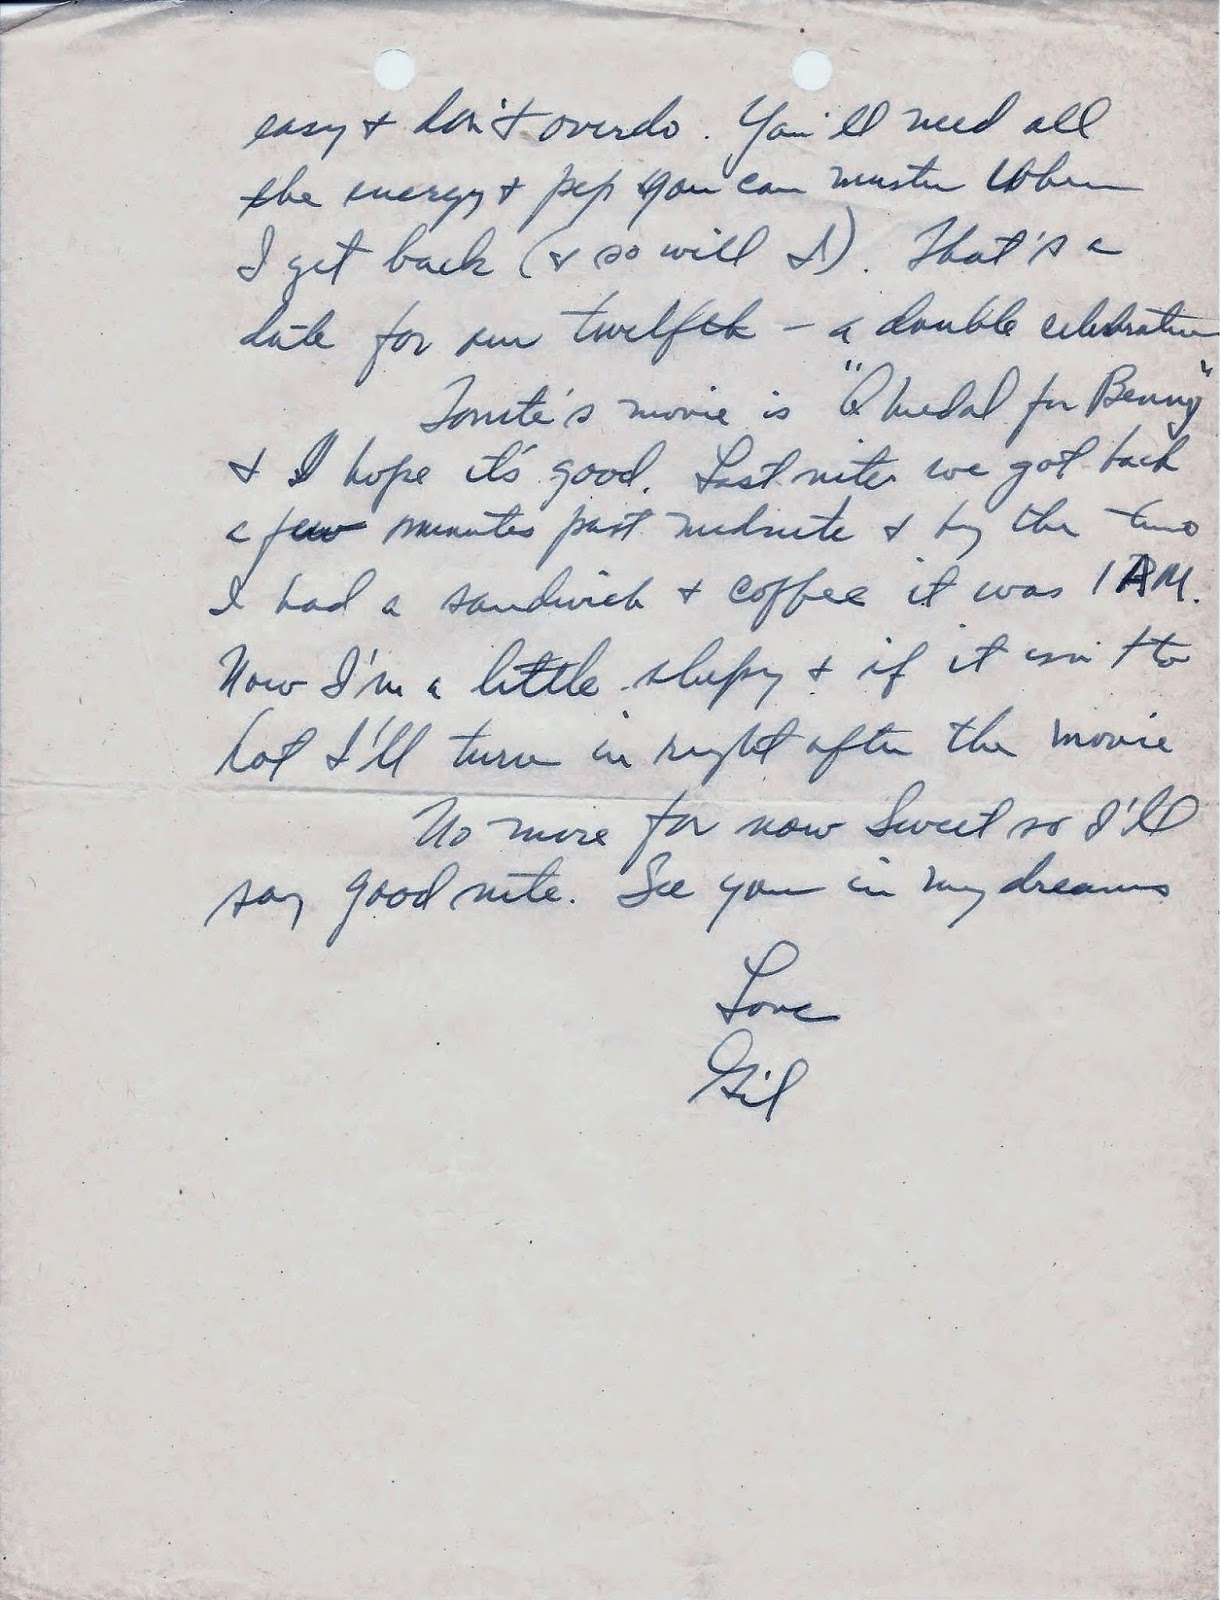 easy & don't overdo. You'll need all
the energy & pep you can muster when
I get back (& so will I). That's a
date for our twelfth - a double celebration
Tonite's movie is "A Medal for Benny"
& I hope it's good. Last nite we got back
a few minutes past midnite & by the time
I had a sandwich & coffee it was 1 AM.
Now I'm a little sleepy & if it isn't to
hot I'll turn in right after the movie
No more for now Sweet so I'll
say good nite. See you in my dreams
Love
Gil